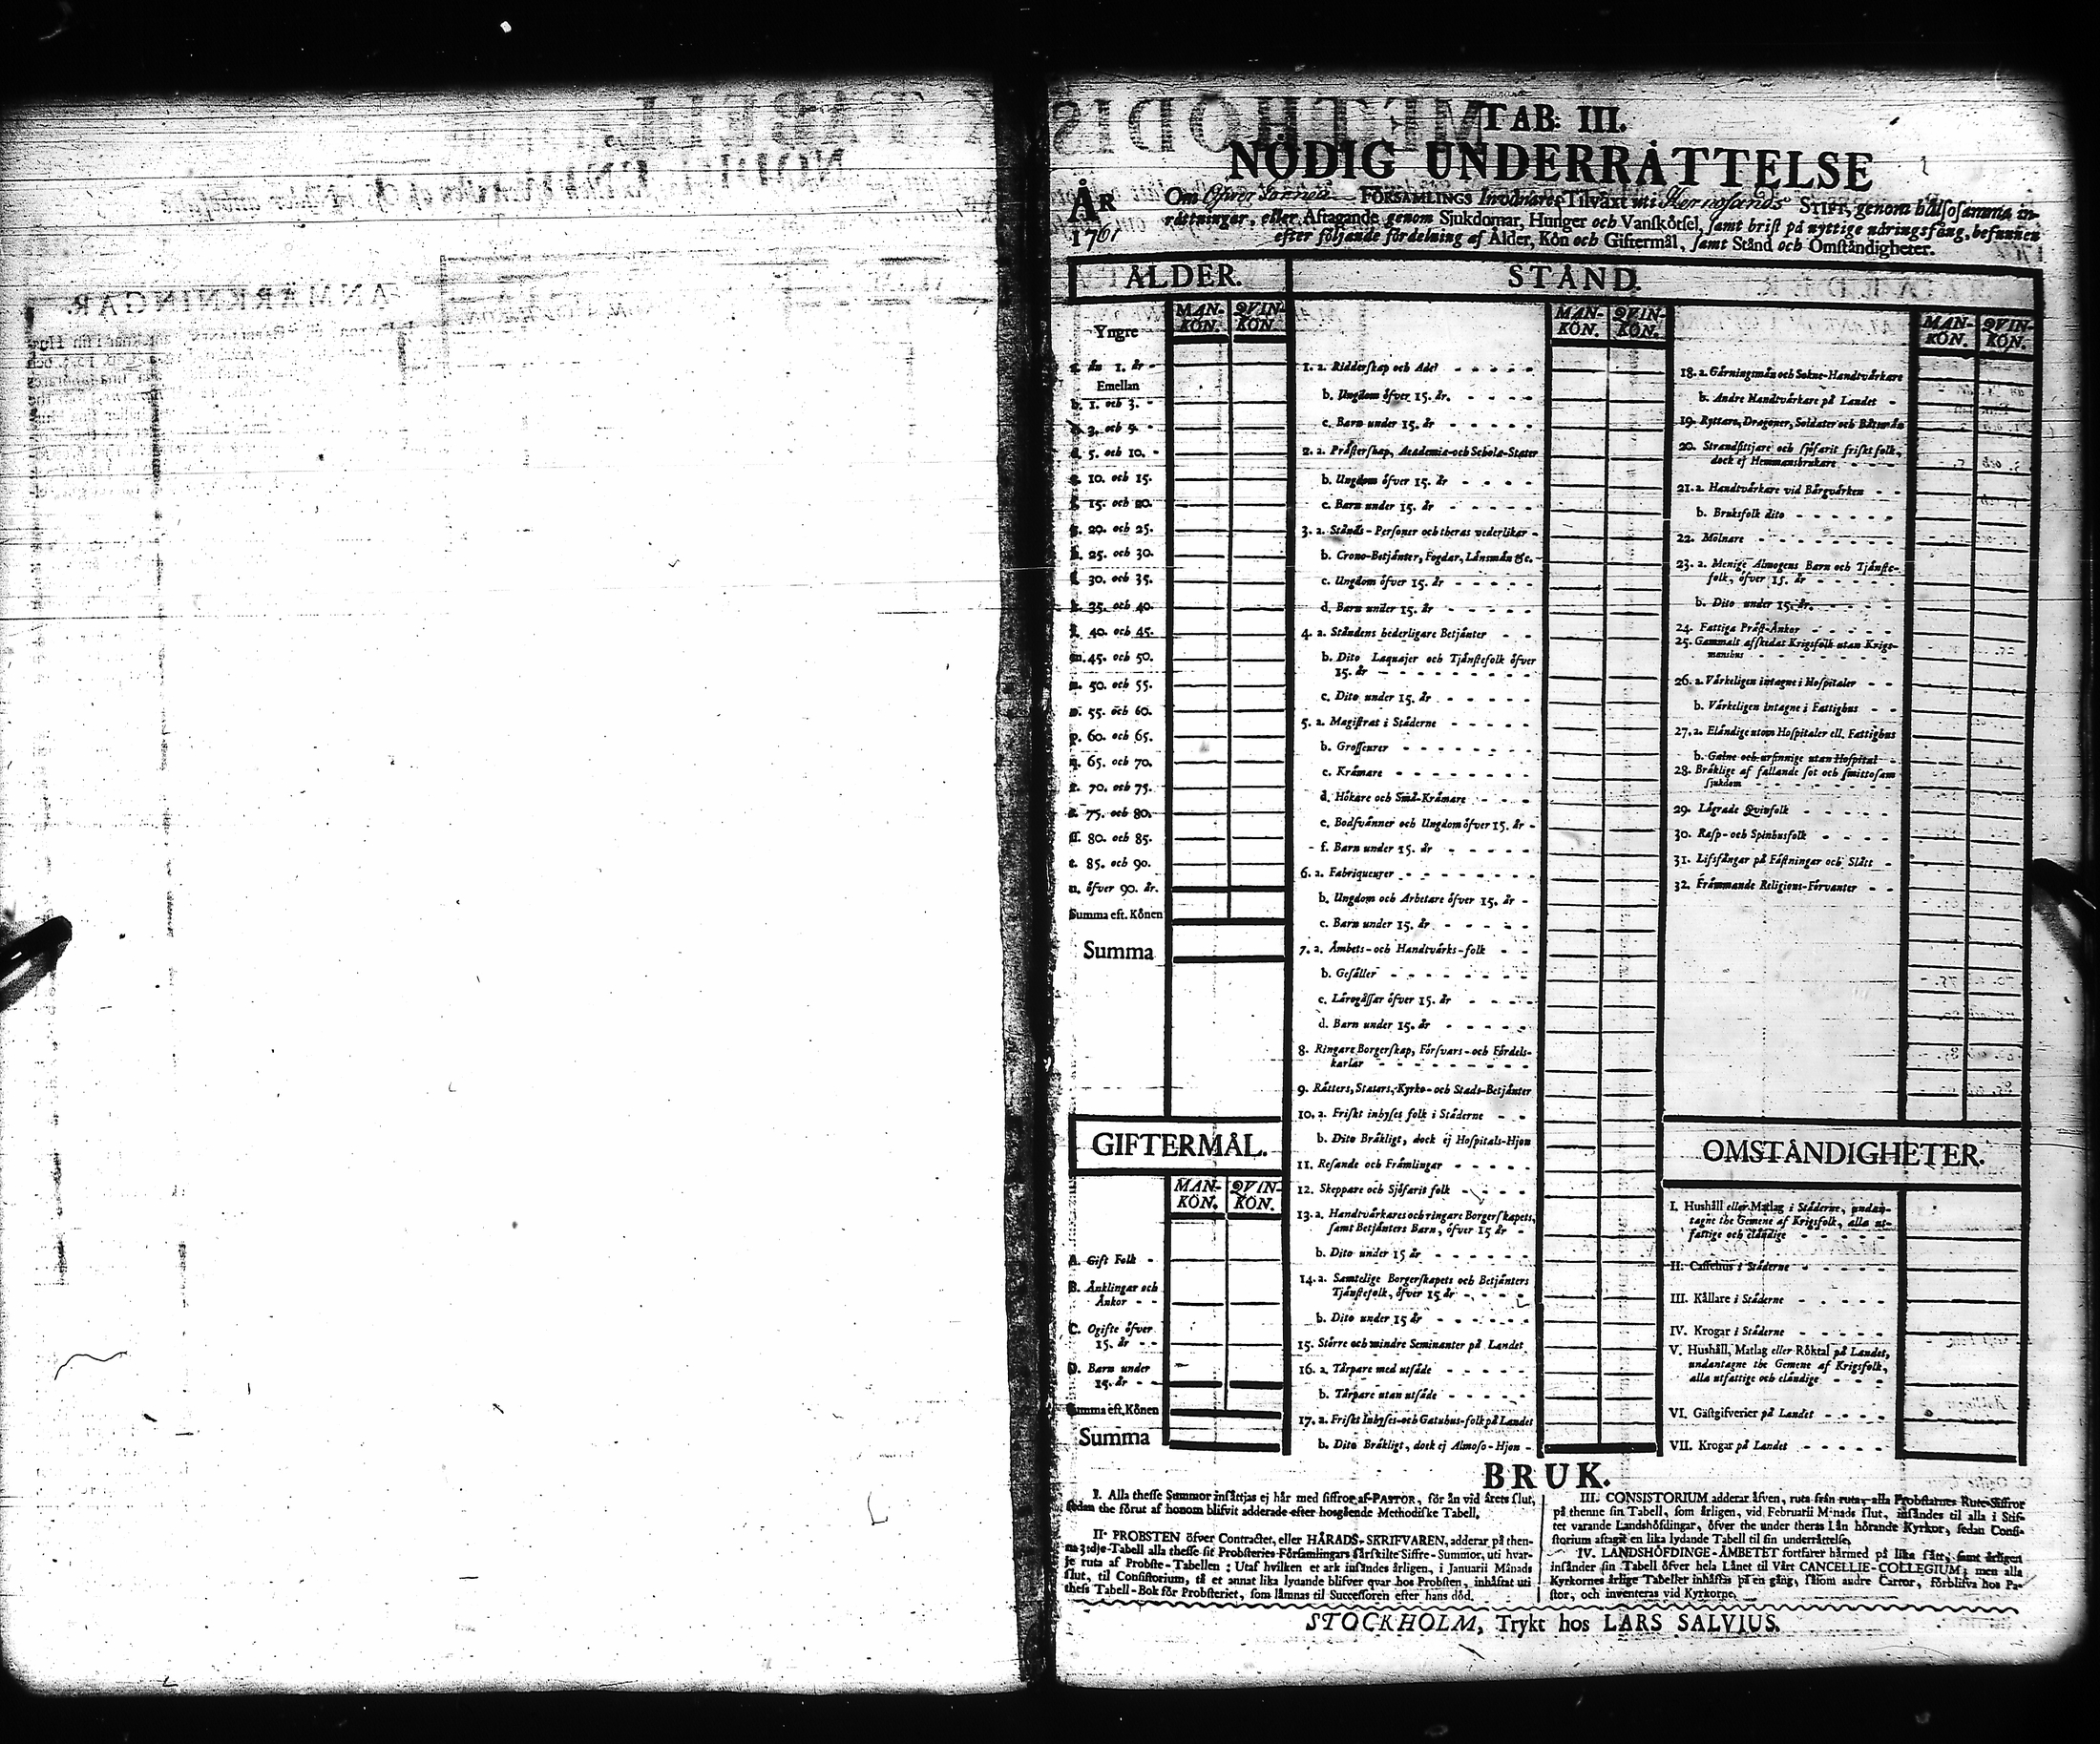 TAB. III.
NÖDIG UNDERRÅTTELSE
ÅR
1761
Om Öfver Torneå FÖRSAMLINGS Invånares Tilväxt uti Hernösands STIFT, genom hälsosamma in-
råttningar, eller Aftagande genom Sjukdomar, Hunger och Vanskötsel, samt brist på nyttige näringsfång, befunnen
efter följande fördelning af Ålder, Kön och Giftermål, samt Stånd och Omståndigheter.
ÅLDER.
MAN-KÖN. QVIN-KÖN.
Yngre
a. än 1. år -
Emellan
b. 1. och 3. -
c. 3. och 5. -
d. 5. och 10. -
e. 10. och 15.
f. 15. och 20.
g. 20. och 25.
h. 25. och 30.
i. 30. och 35.
k. 35. och 40.
l. 40. och 45.
m. 45. och 50.
n. 50. och 55.
o. 55. och 60.
p. 60. och 65.
q. 65. och 70.
r. 70. och 75.
s. 75. och 80.
ss. 80. och 85.
t. 85. och 90.
u. öfver 90. år.
Summa eft. Könen
Summa
GIFTERMÅL.
MAN-KÖN. QVIN-KÖN.
A. Gift Folk -
B. Änklingar och
Änkor - -
C. Ogifte öfver
15. år - -
D. Barn under
15. år - -
Summa eft. Könen
Summa
STÅND.
MAN-KÖN. QVIN-KÖN.
1. a. Ridderskap och Adel
b. Ungdom öfver 15. år.
c. Barn under 15. år
2. a. Prästerskap, Academie-och Schole-Stater
b. Ungdom öfver 15. år
c. Barn under 15. år
3. a. Stånds-Personer och theras vederlikar
b. Crono-Betjänter, Fogdar, Länsmän &c.
c. Ungdom öfver 15. år
d. Barn under 15. år
4. a. Ståndens hederligare Betjänter
b. Dito Laquajer och Tjänstefolk öfver
15. år
c. Dito under 15. år
5. a. Magistrat i Städerne
b. Grosseurer
c. Krämare
d. Hökare och Små-Krämare
e. Bodsvänner och Ungdom öfver 15. år
f. Barn under 15. år
6. a. Fabriqueurer
b. Ungdom och Arbetare öfver 15. år
c. Barn under 15. år
7. a. Ämbets-och Handtvärks-folk
b. Gesäller
c. Lärogåssar öfver 15. år
d. Barn under 15. år
8. Ringare Borgerskap, Försvars-och Fördels-
karlar
9. Rätters, Staters, Kyrko-och Stads-Betjänter
10. a. Friskt inhyses folk i Städerne
b. Dito Bräkligt, dock ej Hospitals-Hjon
11. Resande och Främlingar
12. Skeppare och Sjöfarit folk
13. a. Handtvärkares och ringare Borgerskapets,
samt Betjänters Barn, öfver 15 år
b. Dito under 15 år
14. a. Samtelige Borgerskapets och Betjänters
Tjänstefolk, öfver 15 år
b. Dito under 15 år
15. Större och mindre Seminanter på Landet
16. a. Tårpare med utsäde
b. Tårpare utan utsäde
17. a. Friskt Inhyses-och Gatuhus-folk på Landet
b. Dito Bräkligt, dock ej Almoso-Hjon
MAN-KÖN. QVIN-KÖN.
18. a. Gärningsmän och Sokne-Handtvärkare
b. Andre Handtvärkare på Landet
19. Ryttare, Dragoner, Soldater och Båtsmän
20. Strandsittjare och sjöfarit friskt folk,
dock ej Hemmansbrukare
21. a. Handtvärkare vid Bärgvärken
b. Bruksfolk dito
22. Mölnare
23. a. Menige Almogens Barn och Tjänste-
folk, öfver 15. år
b. Dito under 15. år.
24. Fattiga Präst-Änkor
25. Gammalt afskedat Krigsfolk utan Krigs-
manshus
26. a. Värkeligen intagne i Hospitaler
b. Värkeligen intagne i Fattighus
27. a. Eländige utom Hospitaler ell. Fattighus
b. Galne och ursinnige utan Hospital
28. Bräklige af fallande sot och smittosam
sjukdom
29. Lägrade Qvinfolk
30. Rasp-och Spinhusfolk
31. Lifsfångar på Fästningar och Slått
32. Främmande Religions-Förvanter
OMSTÅNDIGHETER.
I. Hushåll eller Matlag i Städerne, undan-
tagne the Gemene af Krigsfolk, alla ut-
fattige och eländige
II. Caffehus i Städerne
III. Källare i Städerne
IV. Krogar i Städerne
V. Hushåll, Matlag eller Röktal på Landet,
undantagne the Gemene af Krigsfolk,
alla utfattige och eländige
VI. Gästgifverier på Landet
VII. Krogar på Landet
BRUK.
I. Alla thesse Summor insättjas ej här med siffror af PASTOR, för än vid årets slut,
sedan the förut af honom blifvit adderade efter hosgående Methodiske Tabell.
II. PROBSTEN öfver Contractet, eller HÄRADS-SKRIFVAREN, adderar på then-
na 3:dje Tabell alla thesse sit Probsteries Församlingars särskilte Siffre-Summor, uti hvar-
je ruta af Probste-Tabellen; Utaf hvilken et ark insändes årligen, i Januarii Månads
slut, til Consistorium, tå et annat lika lydande blifver qvar hos Probsten, inhäftat uti
thess Tabell-Bok för Probsteriet, som lämnas til Successoren efter hans död.
III. CONSISTORIUM adderar äfven, ruta från ruta, alla Probstarnes Rute-Siffror
på thenne sin Tabell, som årligen, vid Februarii Månads slut, insändes til alla i Stif-
tet varande Landshöfdingar, öfver the under theras Län hörande Kyrkor, sedan Consi-
storium aftagit en lika lydande Tabell til sin underrättelse.
IV. LANDSHÖFDINGE-ÄMBETET fortfarer härmed på lika sätt, samt årligen
insänder sin Tabell öfver hela Länet til Vårt CANCELLIE-COLLEGIUM; men alla
Kyrkornes årlige Tabeller inhäftas på en gång, såsom andre Cartor, förblifva hos Pa-
stor, och inventeras vid Kyrkorne.
STOCKHOLM, Trykt hos LARS SALVIUS.